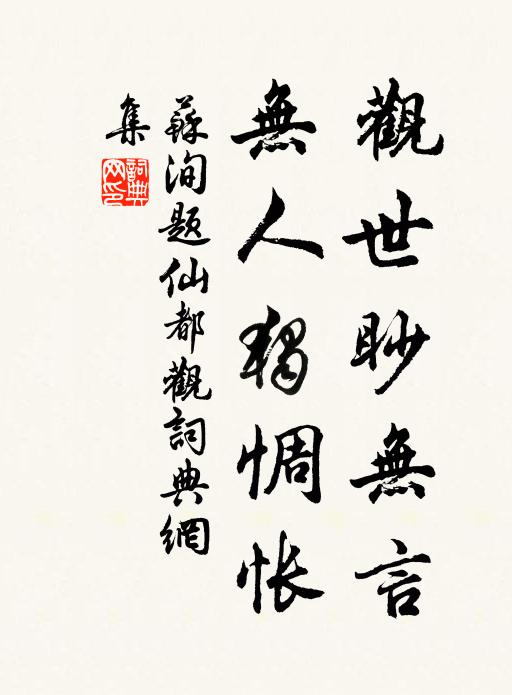 觀世眇無言
無人獨惆悵
蘇洵題仙都觀詞典網
集
詞典網印